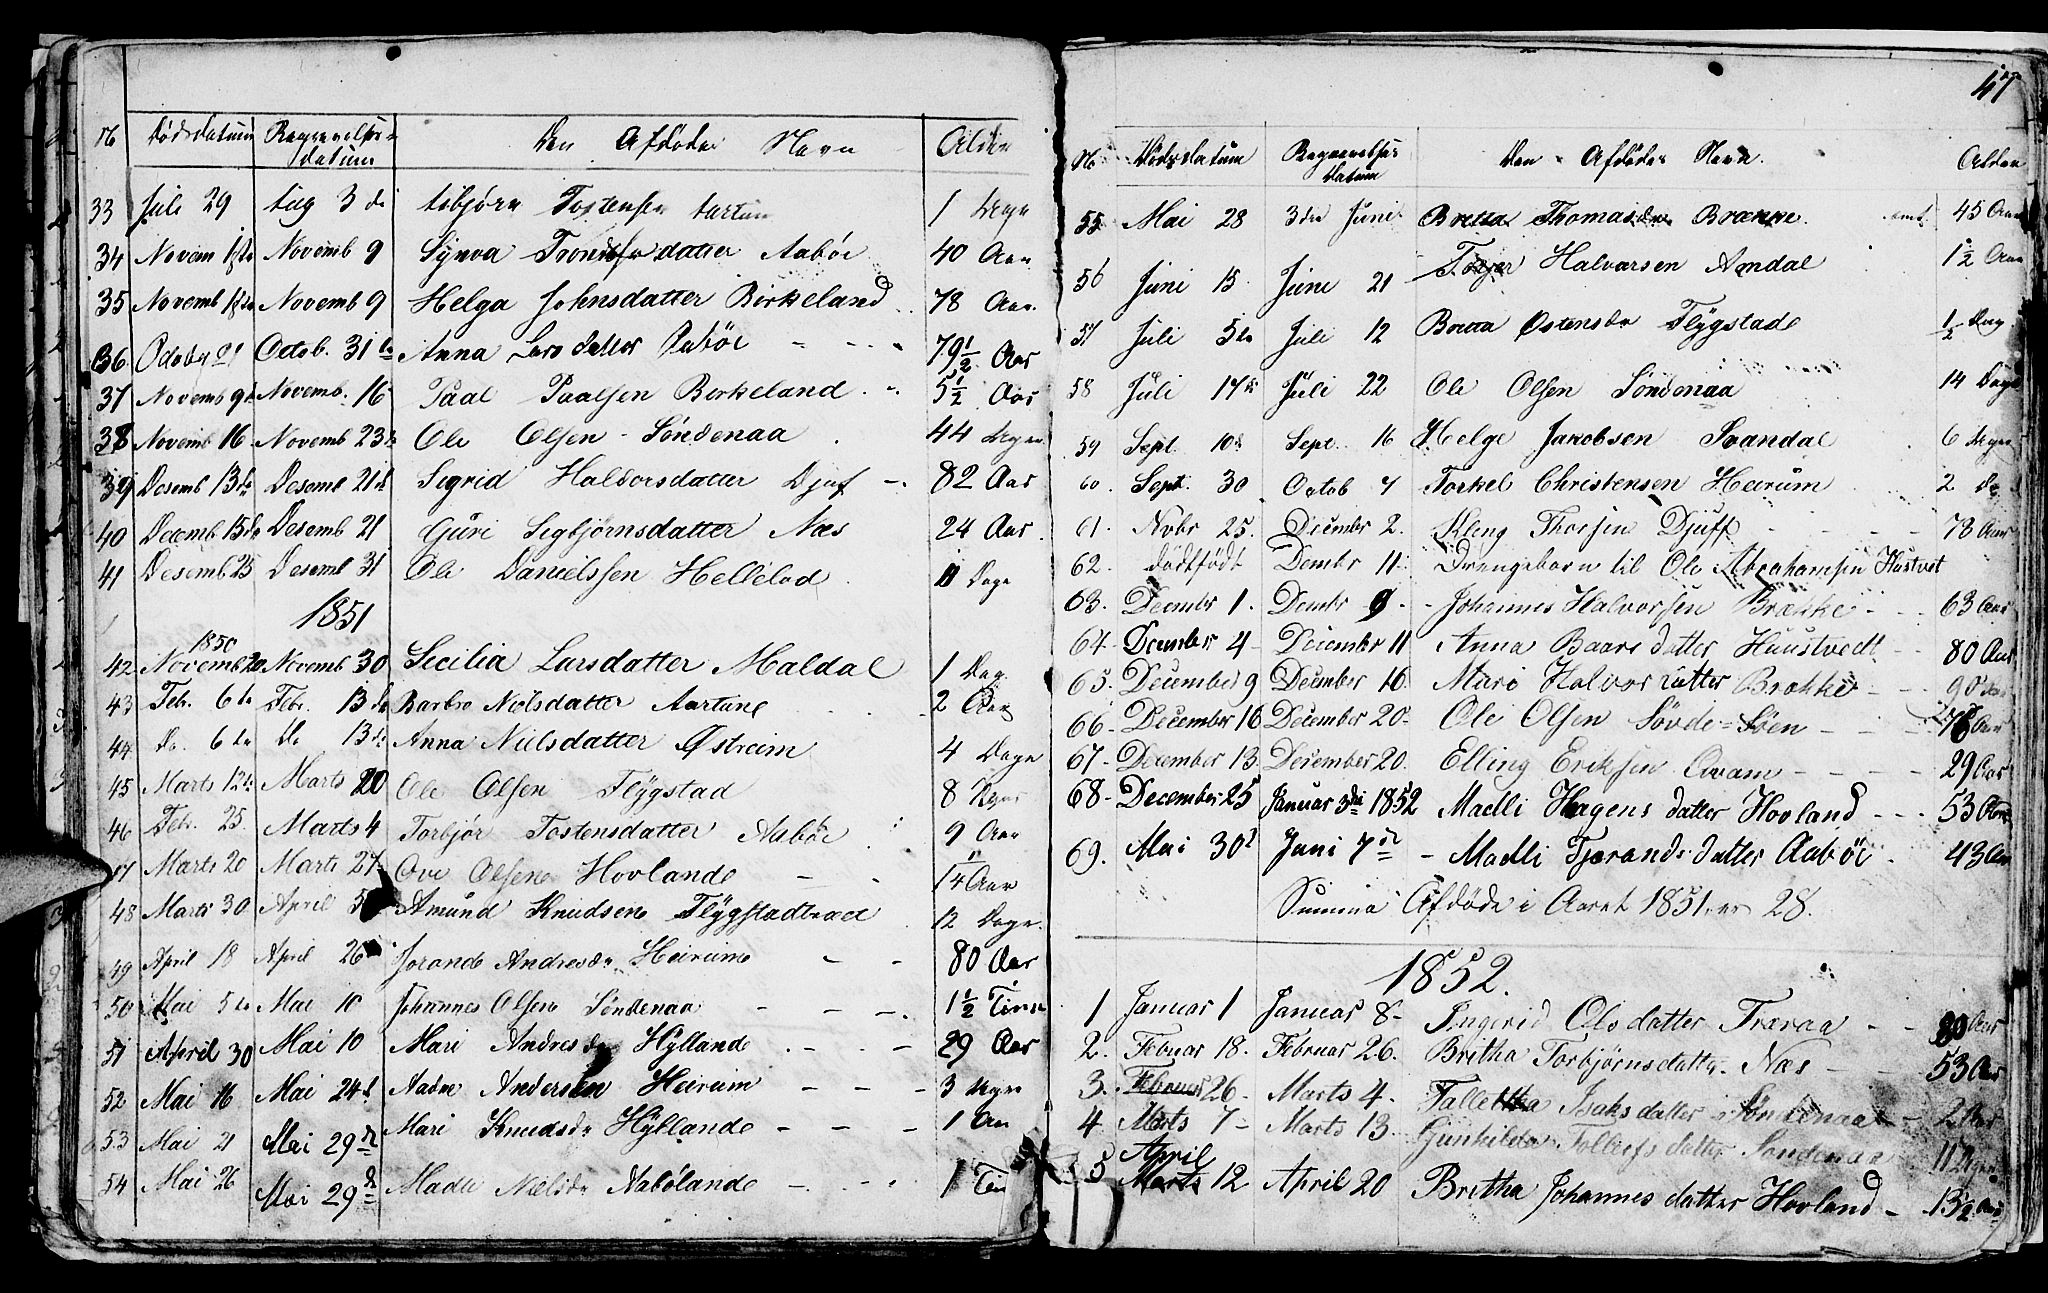 N Dödsdatum Begravelses- Den Afdödes Navn Alder
datum
33 Juli 29 Aug 3 de Asbjörn Tostensen Aartun 1 Degn
34 Novem 1ste Novemb 9 Synva Trondsdatter Aaböe 40 Aar
35 Novemb 1ste Novemb 9 Helga Johnsdatter Birkeland 78 Aar
36 Octob. 31 te Anna Larsdatter Aaböe - - - 79 1/2 Aar
37 Novemb 9de Novemb. 16 Paal Paalsen Berkeland - 5 1/2 Aar
38 Novemb 16 Novemb 23de Ole Olsen - Söndenaa 44 Degn
39 Desemb 13de Desemb 21de Sigrid Haldorsdatter Djuf - 82 Aar
40 Decemb 15de Desemb 21 Guri Segbjörnsdatter Næs 24 Aar
41 Desemb 25 Desemb 31 Ole Danielssen Hellelad 11 Dage
1851
1850
42 Novemb 20 Novemb 30 Secilia Larsdatter Maldal 1 Dag
43 Febr. 6 te Febr. 13 de Barbro Nielsdatter Aartune 2 Aar
44 Do 6 te Do 13 de Anna Nielsdatter Östreim 4 Dage
45 Marts 12te Marts 20 Ole Olsen Flÿgstad 8 Degn
46 Febr. 25 Marts 4 Torbjör Tostensdatter Aaböe 9 Aar
47 Marts 20 Marts 27 Ove Olsen Hovlande - - 14 Aar
48 Marts 30 April 5 Amund Knudsen Flÿgstadbræd 12 Dage
49 April 18 April 26 Jorande Andresdr Heireim - - 80 Aar
50 Mai 5te Mai 10 Johannes Olsen Söndenaa - - - 1 1/2 Time
51 April 30 Mai 10 Mari Andresdr Hÿllande - - - 29 Aar
52 Mai 16 Mai 24de Aadne Andersen Heireim - - - 3 Degn
53 Mai 21 Mai 29de Mari Knudsdr Hÿllande - - - 1 Aar
54 Mai 26 Mai 29de Madle Nielsdr Aabölande - - - 1 Tim
47
N Dödsdatum Begravelses Den Afdödes Navn. Alder
datum
55 Mai 28 3die Juni Bretta Thomasdr Brække. 45 Aar
56 Juni 15 Juni 21 Torjer Halvarsen Aandal 1 1/2 Aar
57 Juli 5te Juli 12 Bretta Östensdr Flÿgstade 1/2 Dag
58 Juli 14de Juli 22 Ole Olsen Söndenaa 14 Dage
59 Sept. 10de Sept. 16 Helge Jakobsen Svandal 6 Degn
60. Sept. 30 Octob 7 Torkel Christensen Heirum 2
61. Nvbr 25. December 2. Kleng Thorsen Djuff - - - 78 Aar
62. dödtfödt Dembr 11. Drengebarn til Ole Abrahamsen Hustvet
63. Decmbr 1. Dembr 9. - Johannes Halvorsen Brække - - 63 Aar
64. December 4 - December 11 Anna Baarsdatter Huustvedt - 80 Aar
65. December 9 December 16. Mari Halvorsdatter Brække - - 90 Aar
66 - December 16 December 20 - Ole Olsen Sövde=Söen - - - 76 Aar
67 - December 13. December 20. Elling Eriksen Qvam - - - 29 Aar
68 - December 25 Januar 3die 1852 Madli Hagensdatter Hovland - - - 53 Aar
69. Mai 30te Juni 7de - Madli Tjerandsdatter Aaböe. 43 Aar
Summa Afdöde i Aaret 1851 er 28.
1852.
1 Januar 1 Januar 8 - Ingerid Olsdatter Træraa - - 80 Aar
2. Febuar 18. Februar 26. Britha Torbjörnsdatter Næs - - 53 Aar
3. Februar 26 - Marts 4. Isaksdatter Söndenaa - 2 Aar
4 Marts 7 - Marts 13. Gunhilda Tollefsdatter Söndenaa 11 Degn
April
5 Marts 12 April 20 Britha Johannesdatter Hovland - 13 1/2 Aar